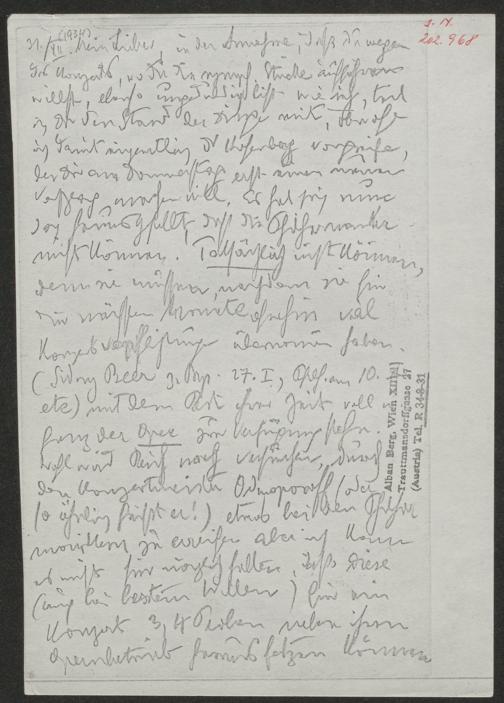 I. N.
202.968
31./XII. (1934) Mein Lieber, in der Annahme, daß Du wegen
des Konzerts, wo Du die symph. Stücke aufführen
willst, ebenso ungeduldig bist wie ich, teil
ich Dir den Stand der Dinge mit, obwohl
ich damit eigentlich Dr Kosenberg vorgreife,
der Dir am Donnerstag erst einen neuen
Vorschlag machen will. Es hat sich nun
doch herausgestellt, daß die Philharmoniker
nicht können. Tatsächlich nicht können,
denn sie müssen, nachdem sie für
die nächsten Monate ohnehin viel
Konzertverpflichtungen übernommen haben.
(Sidney Beer z. Bsp. 27. I, am 10.
etc) mit dem Rest ihrer Zeit voll u
ganz der Oper zur Verfügung stehn.
Wohl wird Reich noch versuchen, durch
den Konzertmeister Odnoposoff (oder
so ähnlich heißt er!) etwas bei den Philhar-
monikern zu erreichen aber ich kann
es nicht für möglich halten, daß diese
(auch bei bestem Willen) für ein
Konzert 3, 4 Proben neben ihrem
Opernbetrieb herausfetzen können
Alban Berg, Wien XIII(1)
Trauttmansdorffgasse 27
(Austria) Tel. R 34-8-31